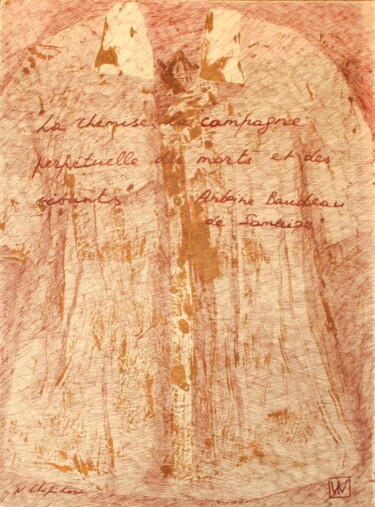 "La chemise, la campagne
perpetuelle des morts et des
vivants"
Antoine Baudeau
de Somaize"